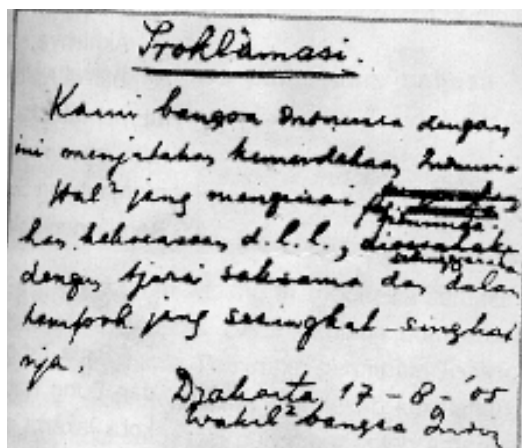 Proklamasi.
Kami bangsa Indonesia dengan
ini menjatakan kemerdekaan Indonesia.
Hal² jang mengenai
pemindahan
kekoeasaan d.l.l., diselenggarakan
dengan tjara saksama dan dalam
tempoh jang sesingkat-singkat
nja.
Djakarta, 17 - 8 - '05
Wakil² bangsa Indon